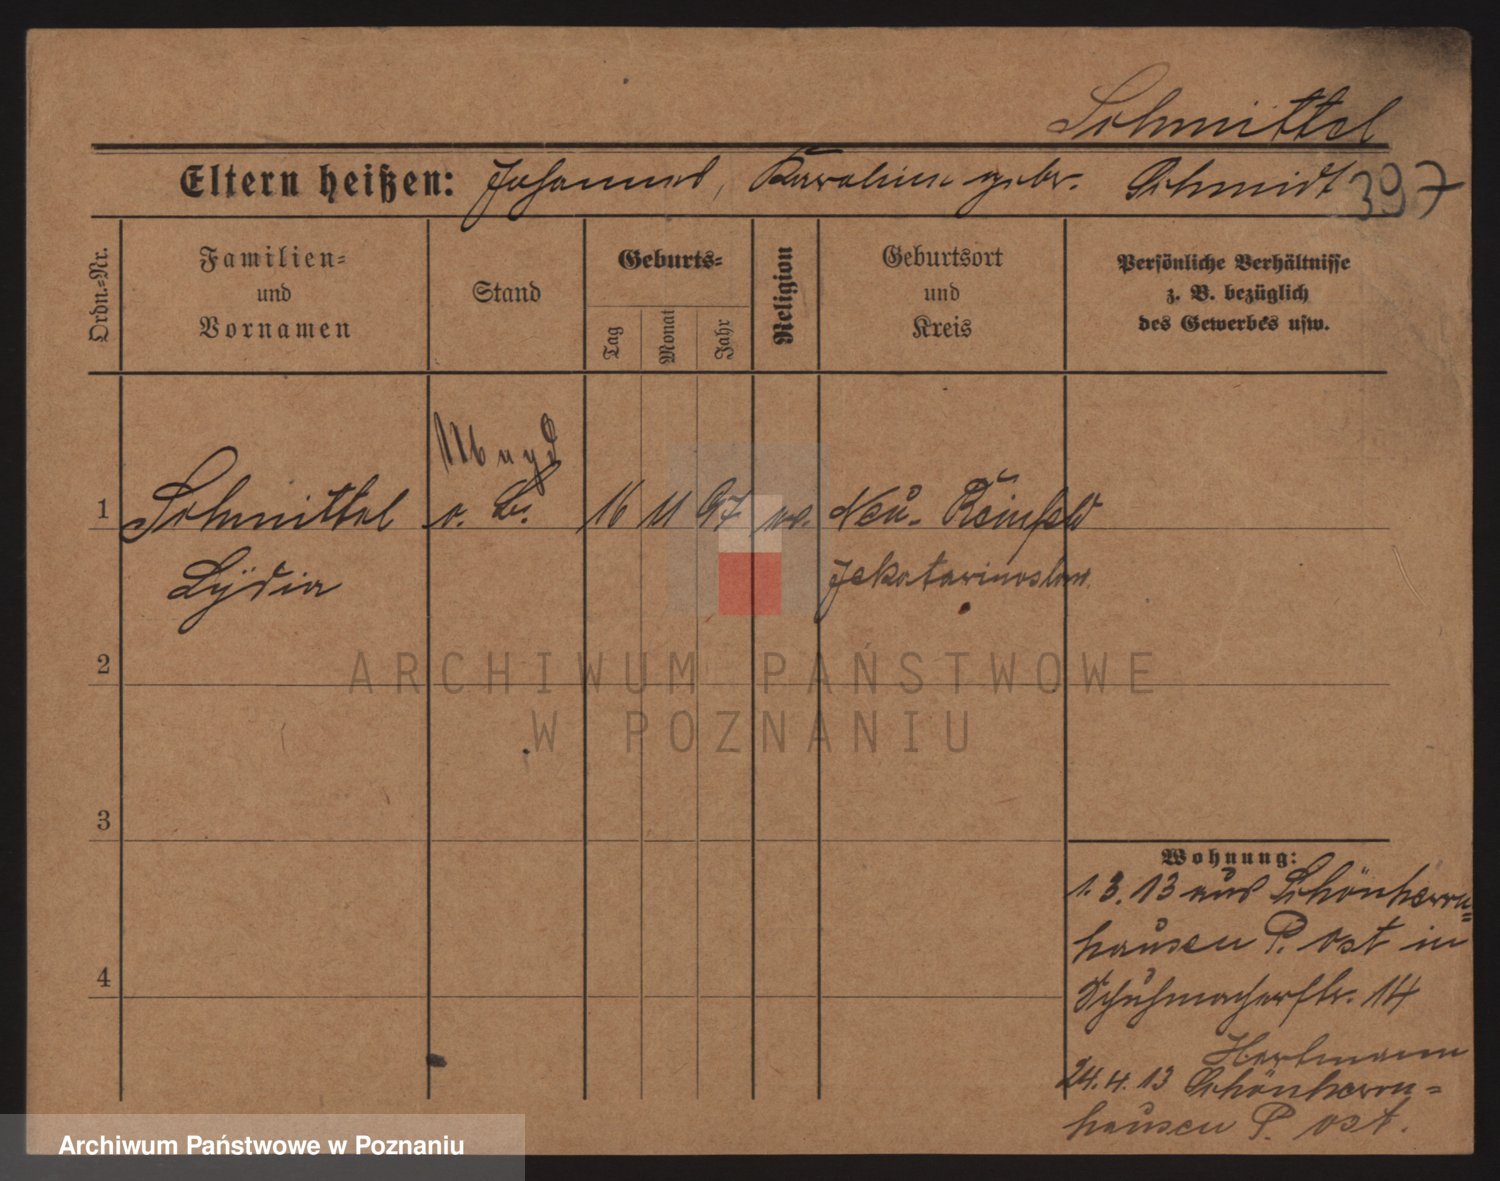 Schmittel
Eltern heißen: Johannes, Karoline gebr. Schmidt 397
Ordn.-Nr.
Familien-
und
Vornamen
Stand
Geburts-
Tag
Monat
Jahr
Religion
Geburtsort
und
Kreis
Persönliche Verhältnisse
z. B. bezüglich
des Gewerbes usw.
Magd
1 Schmittel o. B. 16 11 97 ev. Neu-Reinfeld
Lydia Jekatarinoslaw
2
ARCHIWUM PAŃSTWOWE
W POZNANIU
3
Wohnung:
1.3.13 aus Schönherrn-
hausen P. Ost in
4
Schuhmacherstr. 14
Hartmann
24.4.13 Schönherrn-
hausen P. Ost.
Archiwum Państwowe w Poznaniu